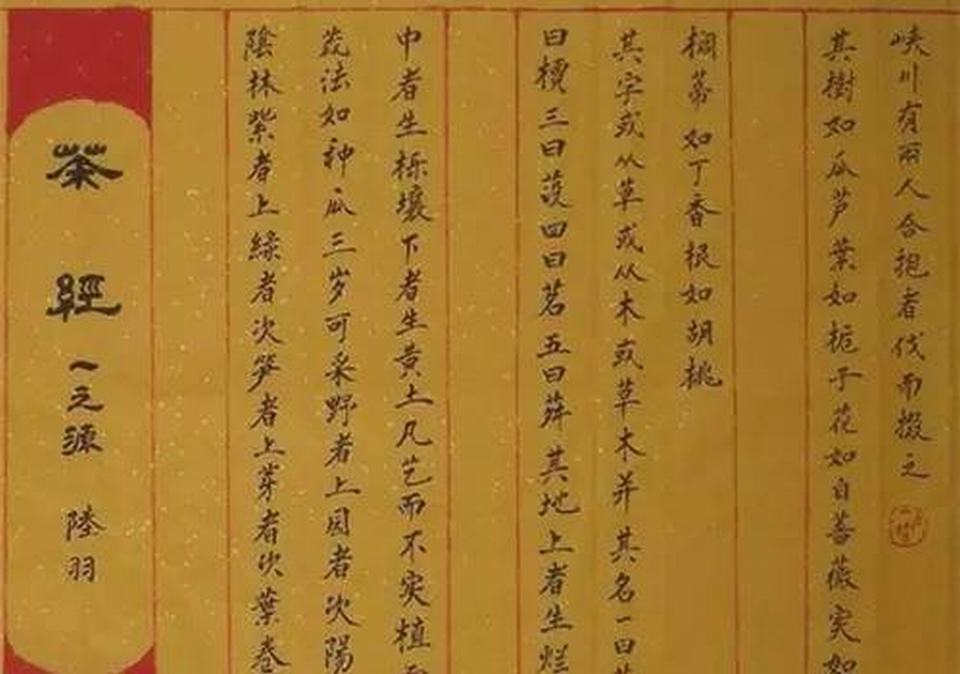 峡川有兩人合抱者伐而掇之
其樹如瓜芦葉如栀子花如白蔷薇实如
榈蒂如丁香根如胡桃
其字或从草或从木或草木并其名一曰
曰槚三曰蔎四曰茗五曰荈其地上者生烂
中者生栎壤下者生黄土凡艺而不实植而
茂法如种瓜三岁可采野者上园者次陽
陰林紫者上緑者次笋者上芽者次葉卷
茶經 一之源 陸羽